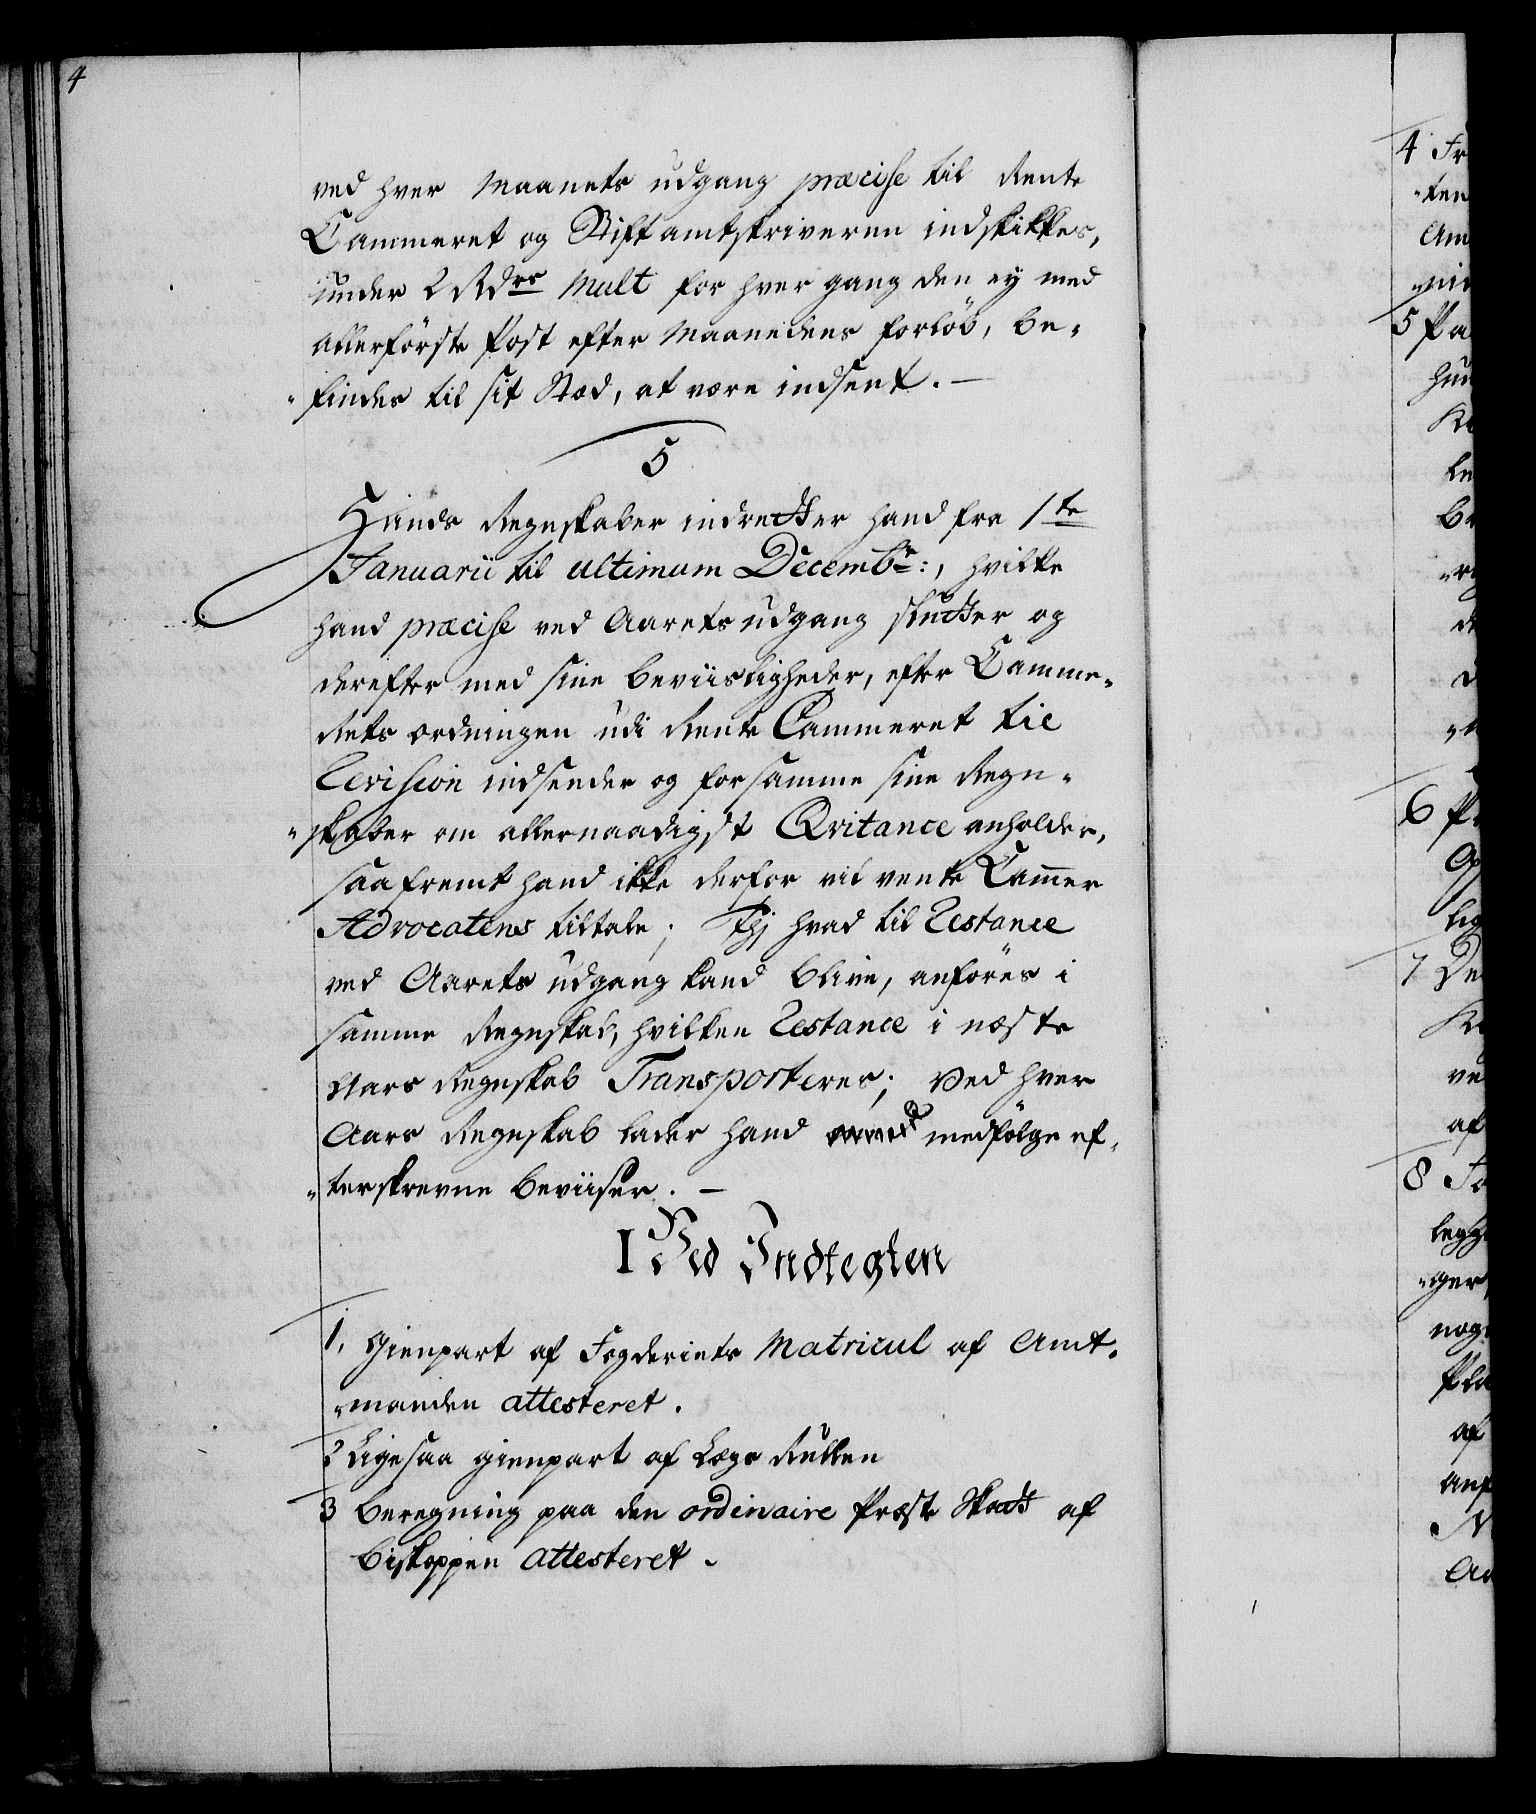 4
ved hver Maanets udgang præcise til Rente
Cammeret og Stiftamtskriveren indskikkes,
under 2 Rdrs Mult for hver gang den ey med
allerförste Post efter Maanedens forlöb, be-
-findes til sit Stæd, at være indsent. —
5
Hands Regnskaber indretter hand fra 1te
Januarii til ultimum Decembr:, hvilke
hand præcise ved Aarets udgang slutter og
derefter med sine beviisligheder, efter Camme-
Rets ordningen udi Rente Cammeret til
Revision indsender og for samme sine Regn-
-skaber om allernaadigst Qvitance anholder,
saafremt hand ikke derfor vil vente Cammer
Advocatens tiltale; Thj hvad til Restance
ved Aarets udgang kand blive, anföres i
samme Regnskab, hvilken Restance i næste
Aars Regnskab Transporteres; Ved hver
Aars Regnskab lader hand medfölge ef-
-terskrevne beviiser. —
I Ved Indtegten
1, Gienpart af Fogderiets Matricul af Amt-
-manden attesteret.
2 Ligesaa gienpart af Lægs Rullen
3 Beregning paa den ordinaire Præste Skatt af
Biskoppen attesteret.
4 Fr
-ten
Am
5 Pa
6
7 De
ve
af
8
legg
-ger,
nog
Pla
af
anf